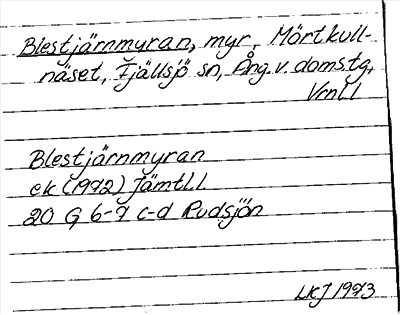 Blestjärnmyran, myr, Mörtkull-
näset, Fjällsjö sn, Ång. v. domstg,
Vrnl l
Blestjärnmyran
ek (1972) Jämtl. l
20 G 6-7 c-d Rudsjön
LKJ 1973